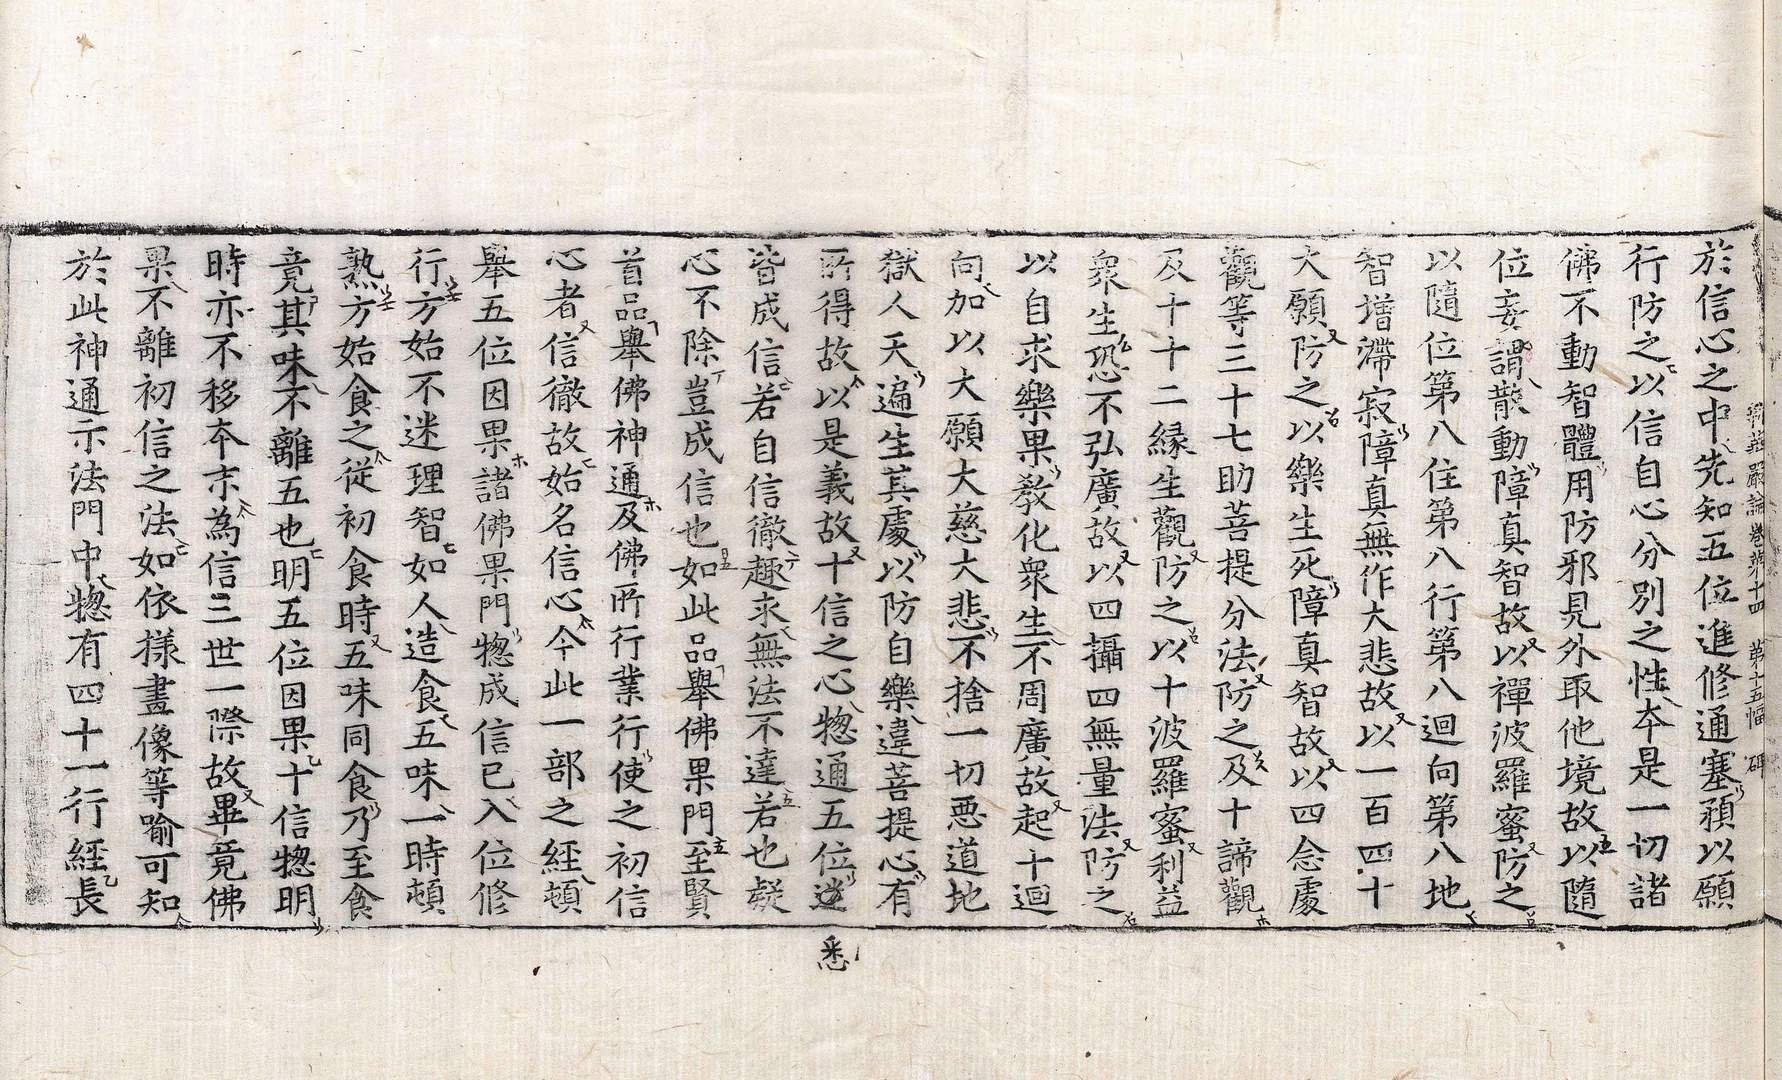 新華嚴論卷第十四　第十五幅　碑
於信心之中先知五位進修通塞預以願
行防之以信自心分別之性夲是一切諸
佛不動智體用防邪見外取他境故以隨
位妄謂散動障真智故以禪波羅蜜防之
以隨位第八住第八行第八迴向第八地
智增滯寂障真無作大悲故以一百四十
大願防之以樂生死障真智故以四念處
觀等三十七助菩提分法防之及十諦觀
及十十二緣生觀防之以十波羅蜜利益
衆生恐不弘廣故以四攝四無量法防之
以自求樂果教化衆生不周廣故起十迴
向加以大願大慈大悲不捨一切悪道地
獄人天遍生其處以防自樂違菩提心有
所得故以是義故十信之心惣通五位遊
皆成信若自信徹趣求無法不達若也疑
心不除豈成信也如此品舉佛果門至賢
首品舉佛神通及佛所行業行使之初信
心者信徹故始名信心今此一部之經頓
舉五位因果諸佛果門惣成信已入位修
行方始不迷理智如人造食五味一時頓
熟方始食之從初食時五味同食乃至食
竟其味不離五也明五位因果十信惣明
時亦不移夲末為信三世一際故畢竟佛
果不離初信之法如依樣畫像等喻可知
於此神通示法門中惣有四十一行經長
悉